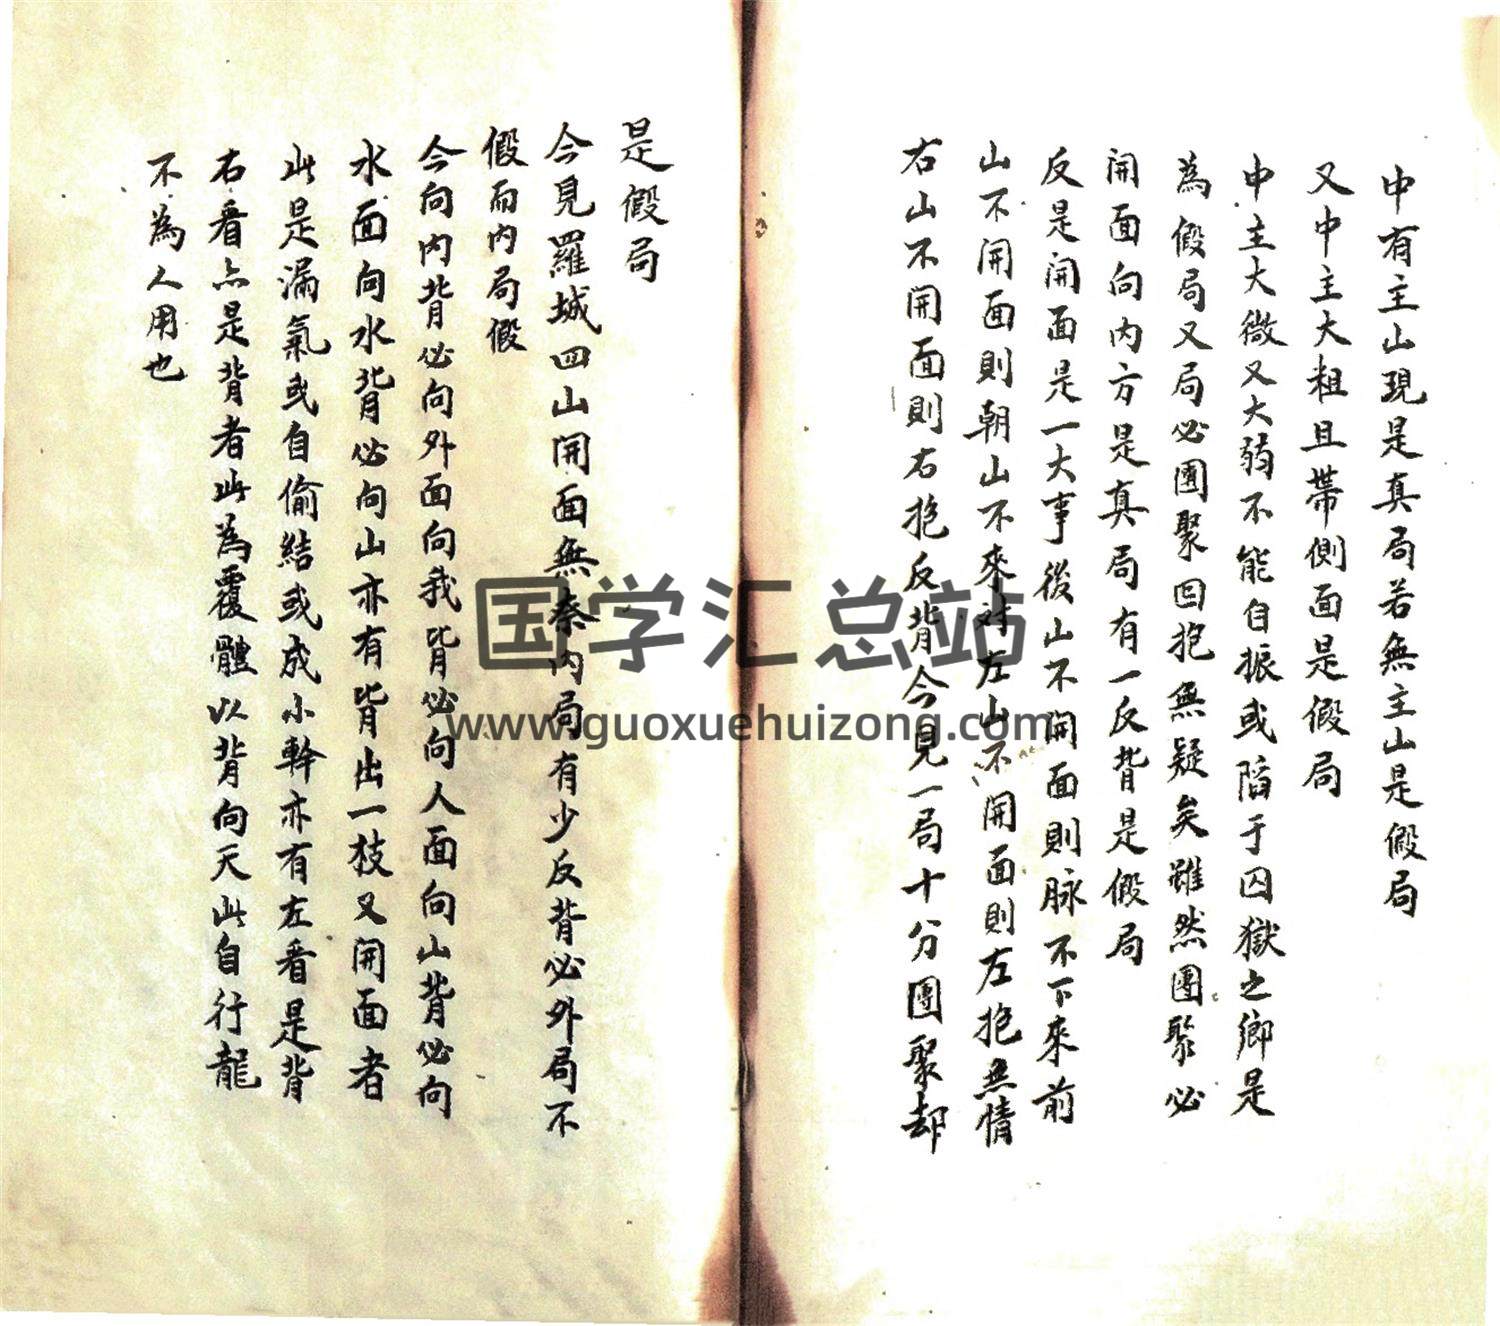 中有主山現是真局若無主山是假局
又中主大粗且帶側面是假局
中主大微又大弱不能自振或陷于囚獄之鄉是
為假局又局必團聚回抱無疑矣雖然團聚必
開面向内方是真局有一反背是假局
反是開面是一大事後山不開面則脉不下來前
山不開面則朝山不來對左山不開面則左抱無情
右山不開面則右抱反背今見一局十分團聚却
是假局
今見羅城四山開面無秦内局有少反背必外局不
假而内局假
今向内背必向外面向我背必向人面向山背必向
水面向水背必向山亦有背出一枝又開面者
此是漏氣或自偷結或成小幹亦有左看是背
右看亦是背者此為覆體以背向天此自行龍
不為人用也
国学汇总站
www.guoxuehuizong.com